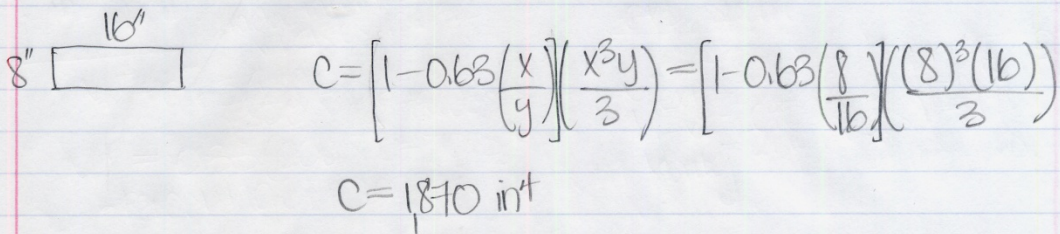 16"
8"
C = [1 - 0.63(x/y)](x³y/3) = [1 - 0.63(8/16)]((8)³(16)/3)
C = 1,870 in⁴